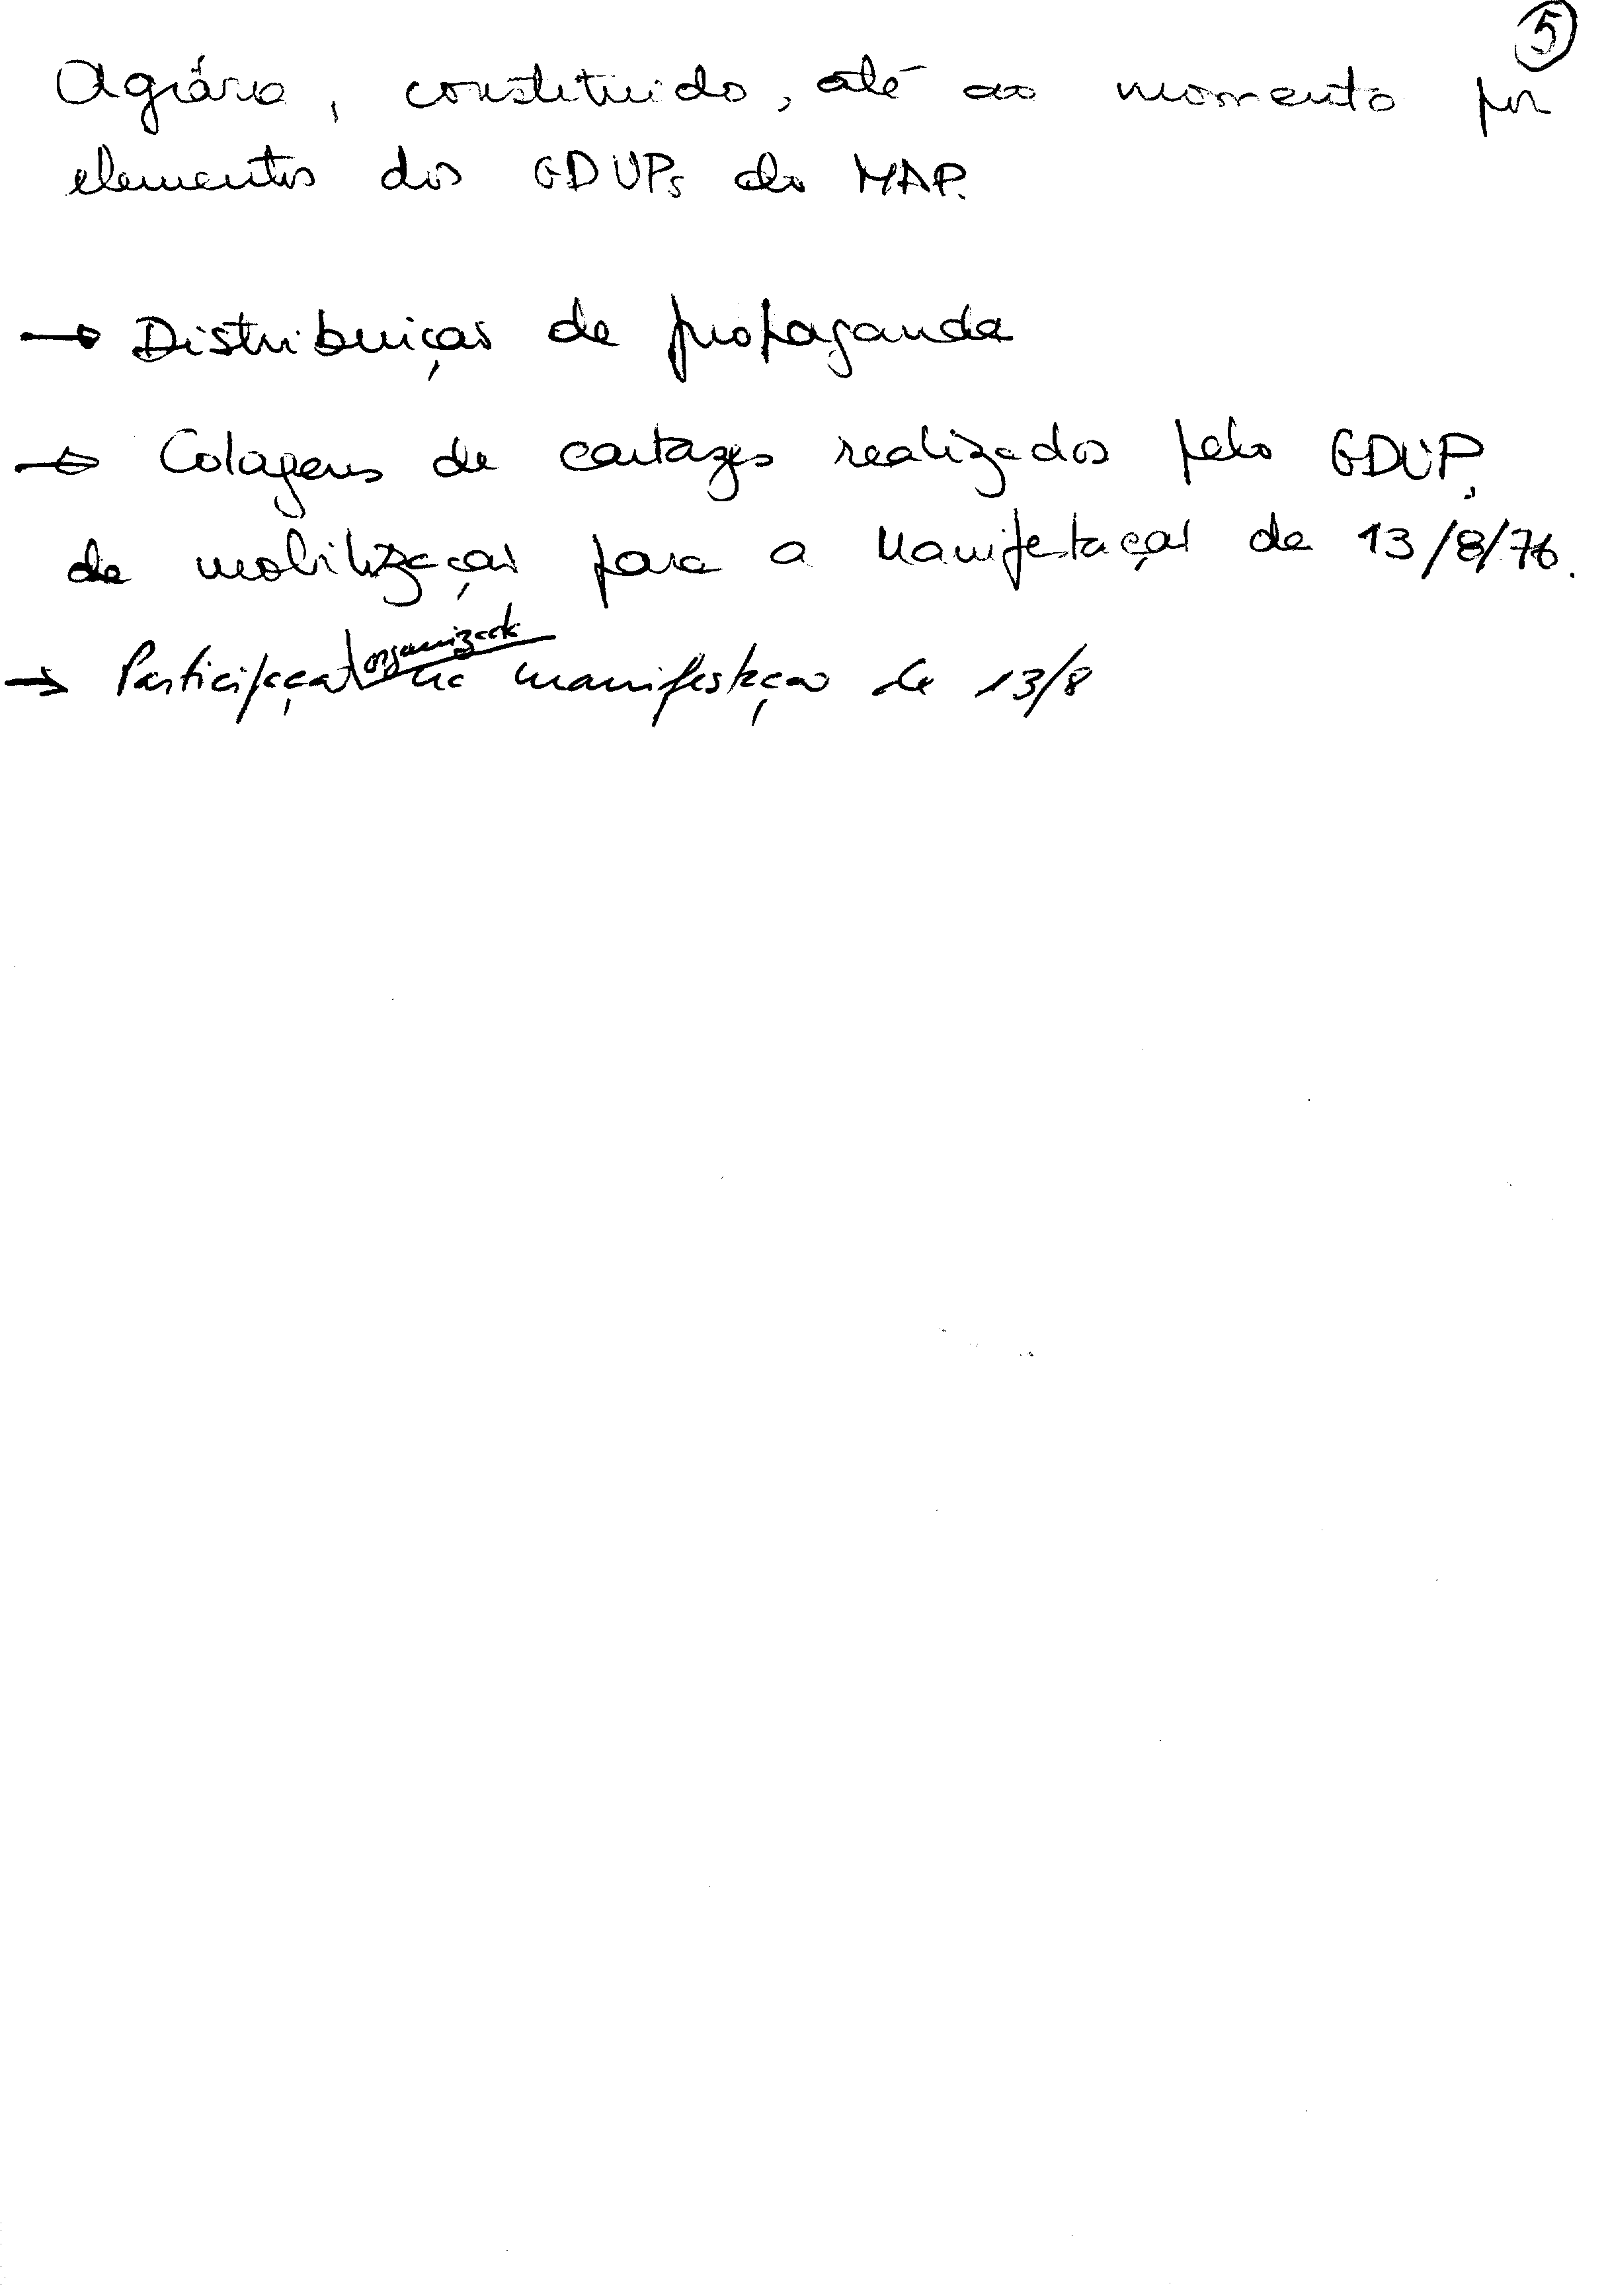 5
Agrária, constituido, até ao momento por
elementos dos GDUPs do MAP.
→ Distribuição de propaganda
→ Colagens de cartazes realizados pelo GDUP,
de mobilização para a Manifestação de 13/8/76.
organizada
→ Participação na manifestação de 13/8